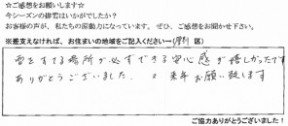 ☆ご感想をお願いします☆
今シーズンの排雪はいかがでしたか?
お客様の声が、私たちの原動力になっています。ぜひ、ご感想をお聞かせ下さい。
※差支えなければ、お住まいの地域をご記入ください→(厚別 区)
雪をすてる場所が必ずできる安心感が嬉しかったです
ありがとうございました。 来年お願い致します
ご協力ありがとうございました!